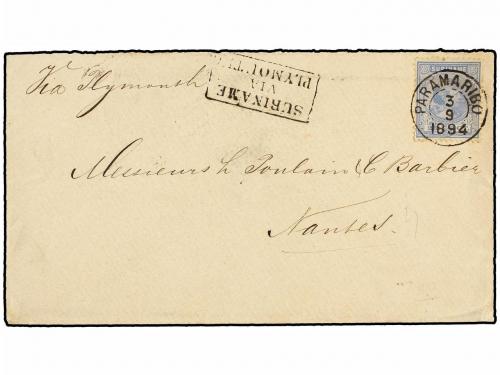 Via Plymouth
SURINAME
VIA
PLYMOUTH
SURINAME
PARAMARIBO
3
9
1894
Messieurs L. Poulain & C. Barbier
Nantes.